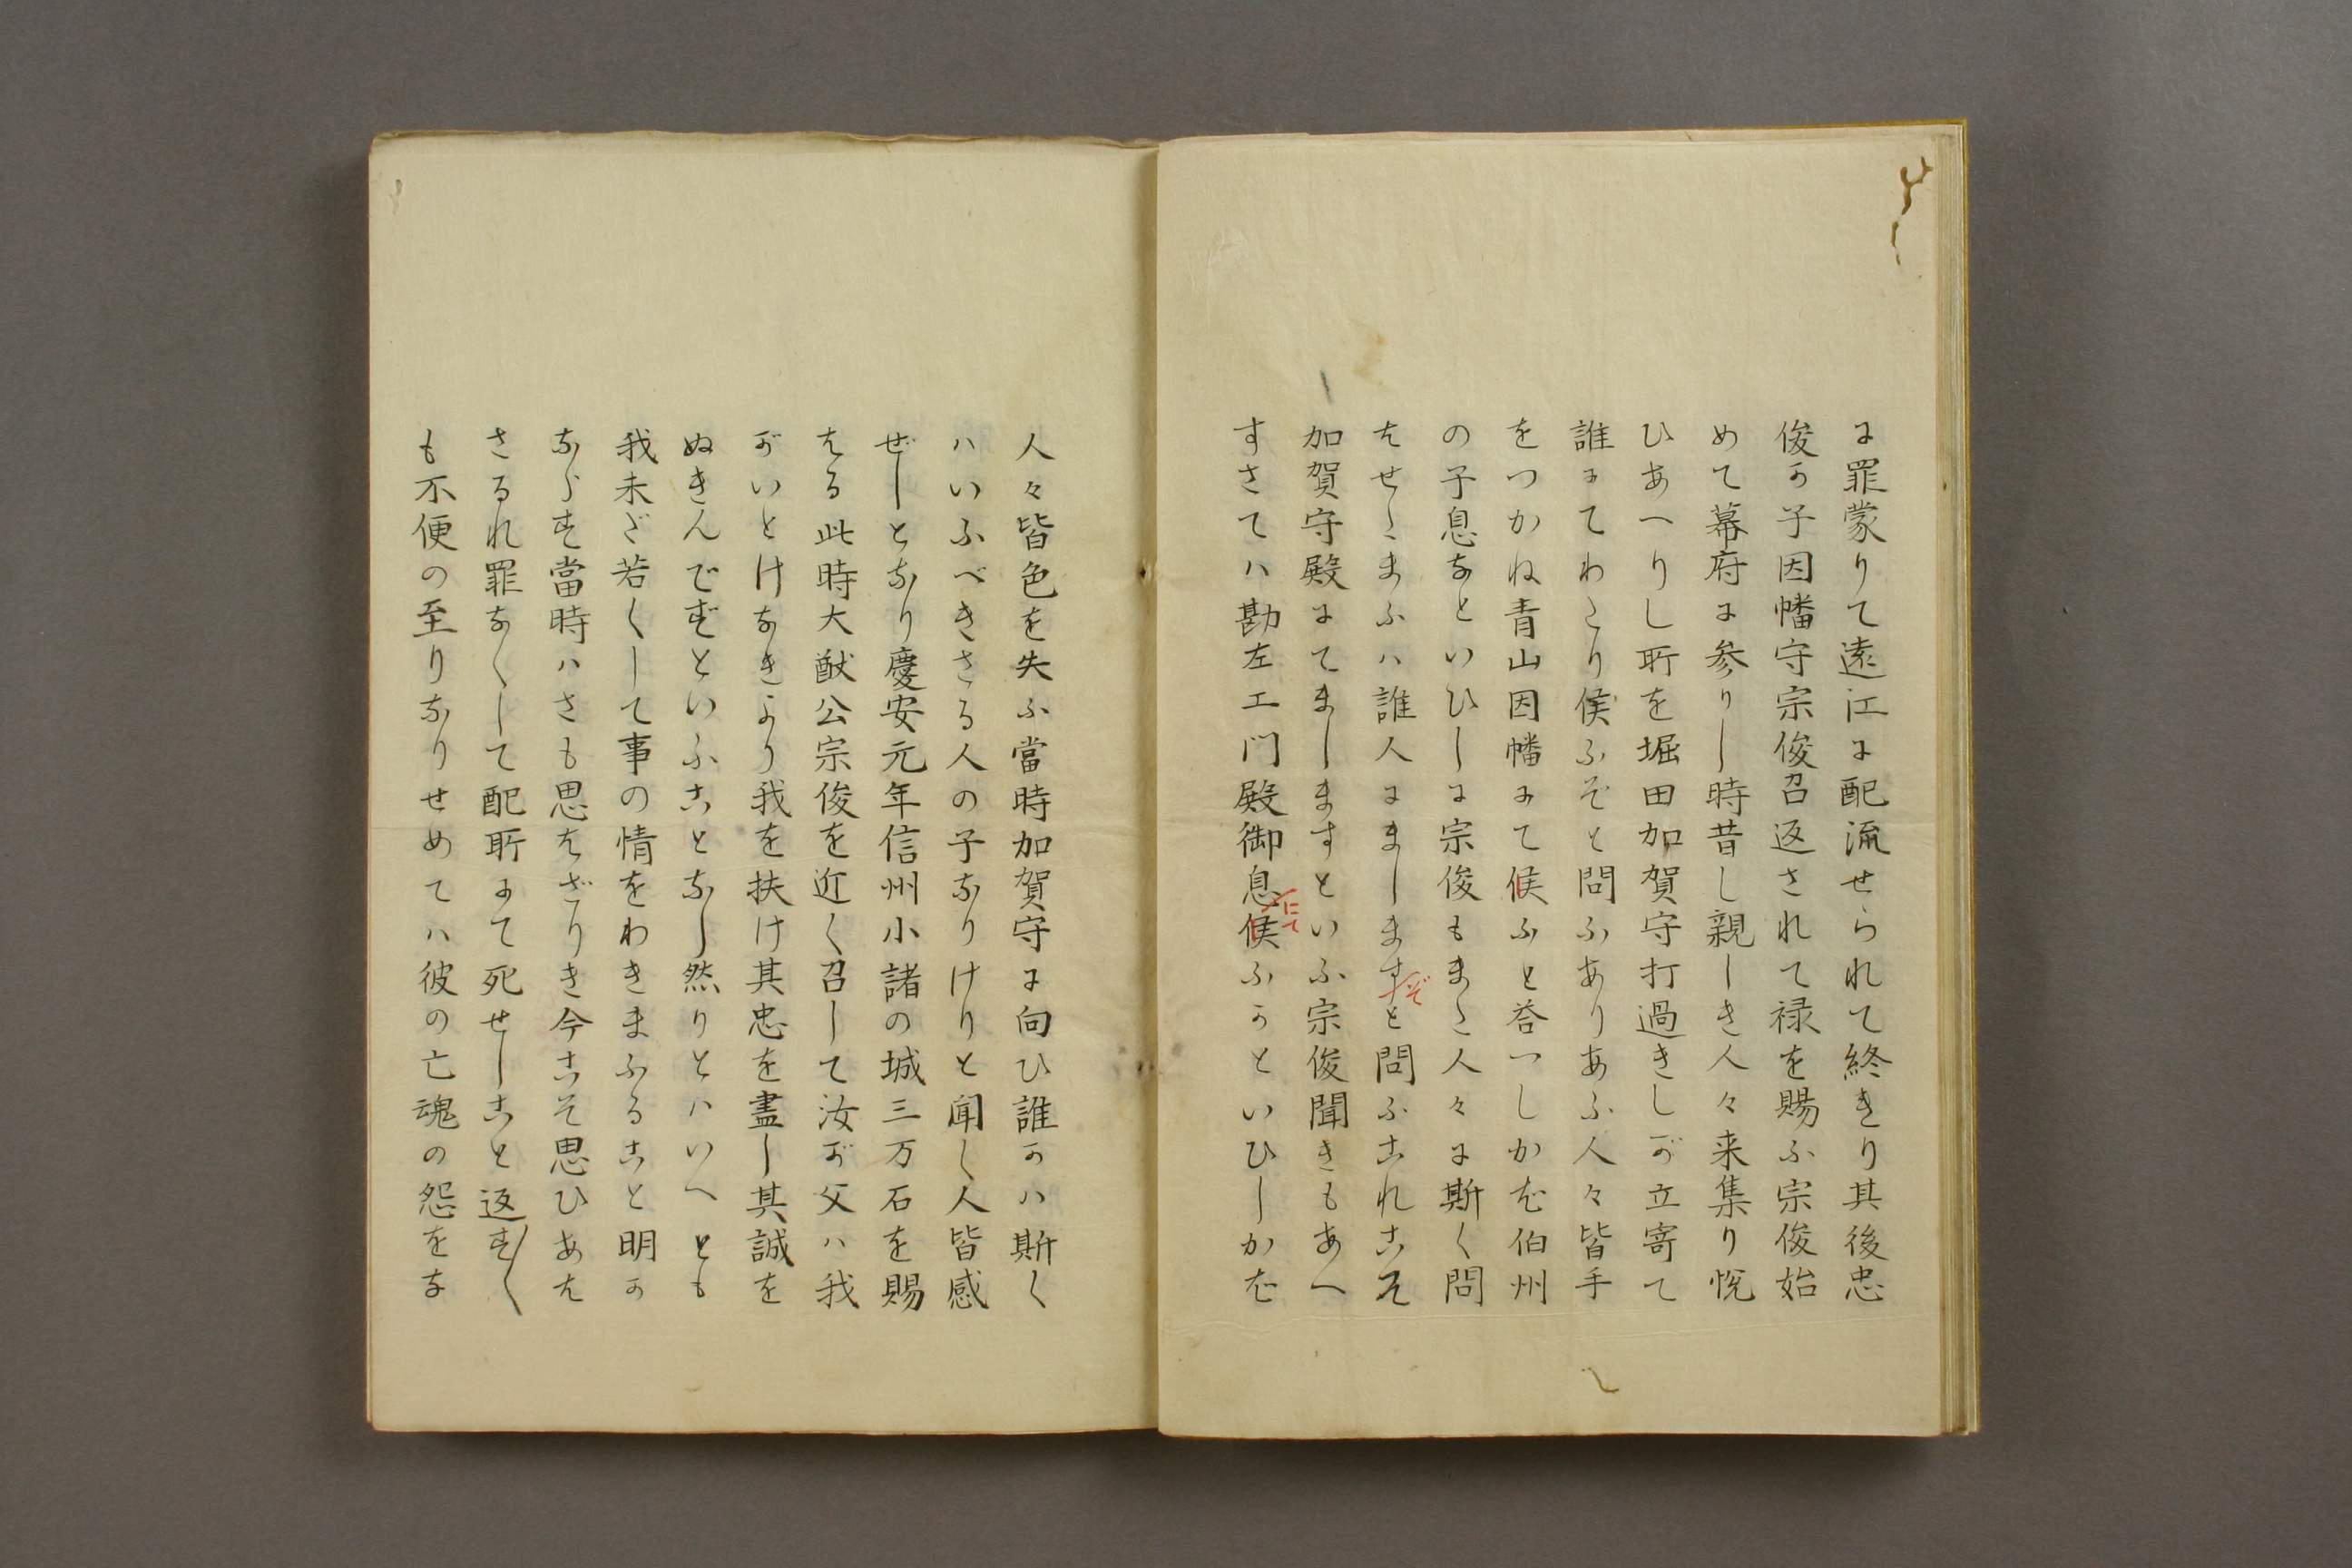 に罪蒙りて遠江に配流せられて終きり其後忠
俊か子因幡守宗俊召返されて禄を賜ふ宗俊始
めて幕府に参りし時昔し親しき人々来集り悦
ひあへりし所を堀田加賀守打過きしが立寄て
誰にてわたり候ふぞと問ふありあふ人々皆手
をつかね青山因幡にて候ふと答つしかば伯州
の子息なといひしに宗俊もまた人々に斯く問
はせたまふハ誰人にましますぞと問ふこれこそ
加賀守殿にてましますといふ宗俊聞きもあへ
すさてハ勘左エ門殿御息にて候ふかといひしかば
人々皆色を失ふ當時加賀守に向ひ誰かハ斯く
ハいふべきさる人の子なりけりと聞く人皆感
ぜしとなり慶安元年信州小諸の城三万石を賜
はる此時大猷公宗俊を近く召して汝が父ハ我
がいとけなきより我を扶け其忠を盡し其誠を
ぬきんでずといふことなし然りとハいへとも
我未ざ若くして事の情をわきまふること明か
ならず當時ハさも思はざりき今こそ思ひあは
さるれ罪なくして配所にて死せしこと返す〱
も不便の至りなりせめてハ彼の亡魂の怨をな